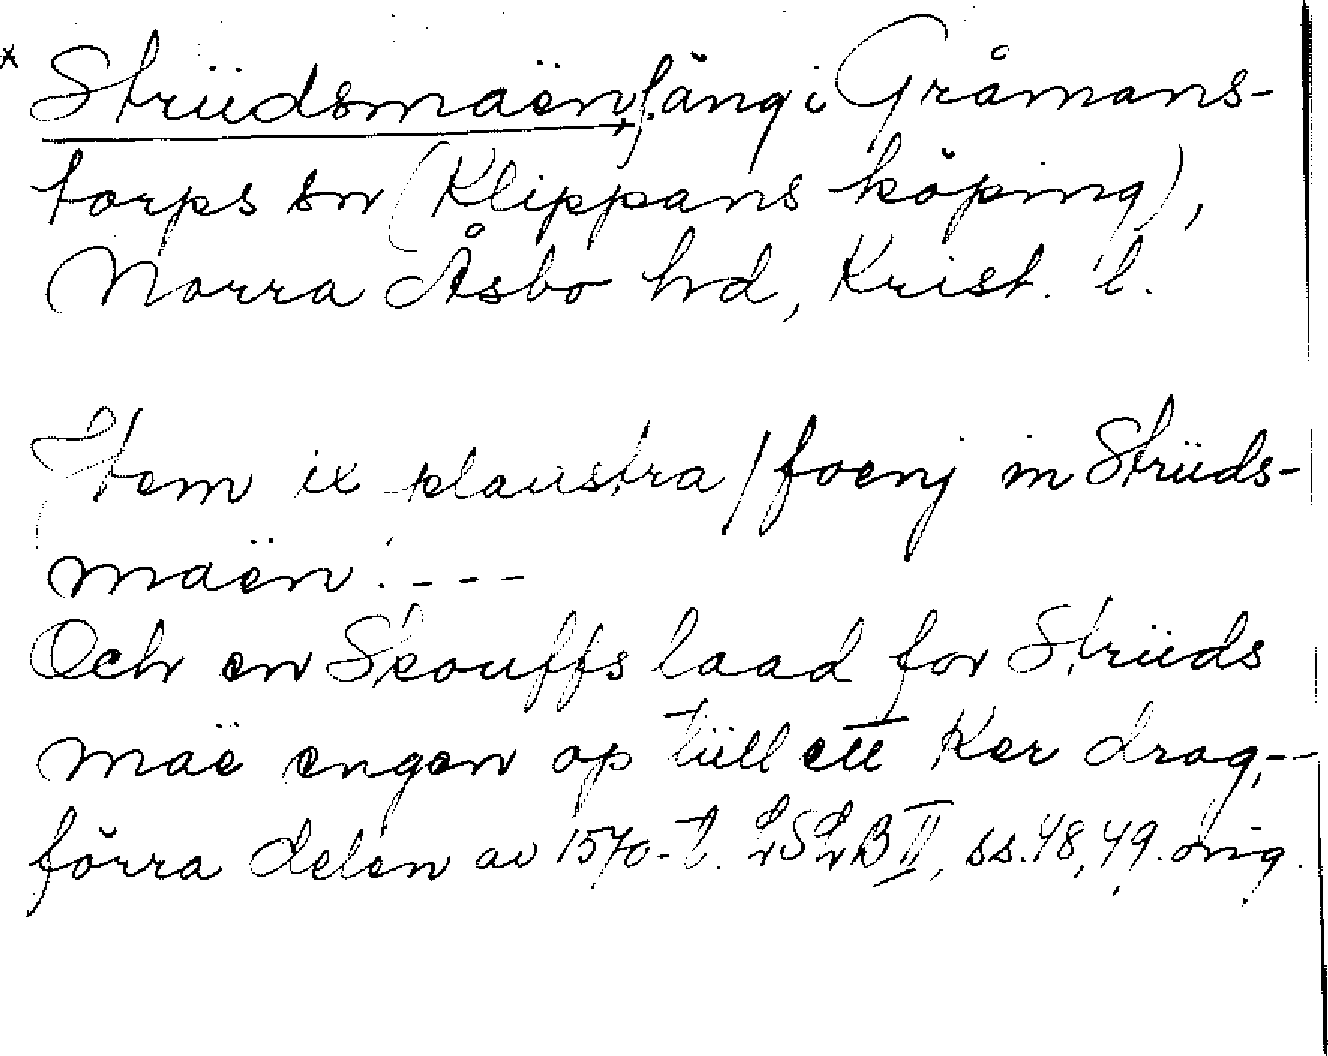 x Strüdsmaën, f. äng i Gråmans-
torps sn (Klippans köping),
Norra Åsbo hd, Krist. l.
Item ix plaustra / foenj in Strüds-
maën: - - -
Och en Skouffs laad for Strüds
maë engen op tüll ett Ker drag, - -
förra delen av 1570-t. LSLB II, ss. 48, 49. orig.